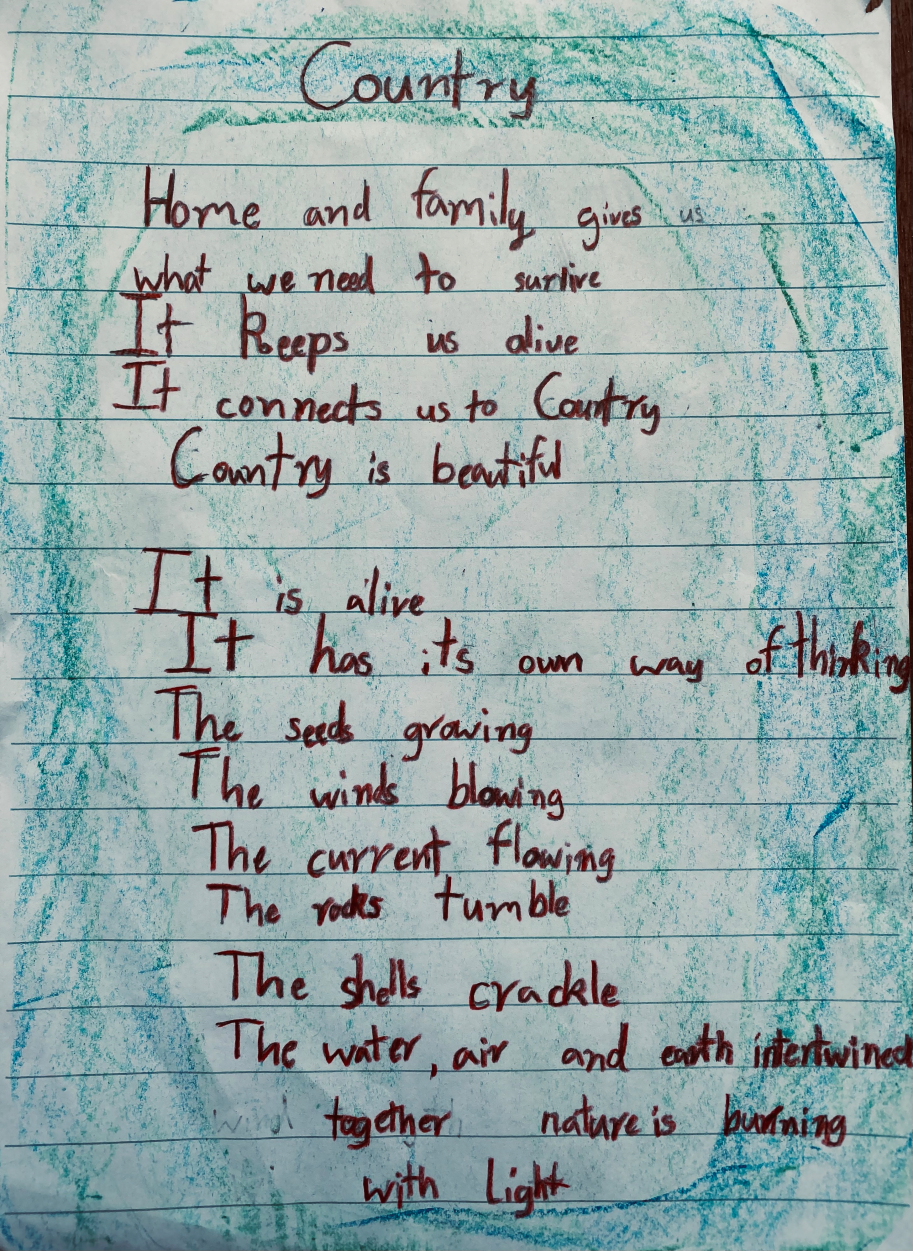 Country
Home and family gives us
what we need to survive
It Keeps us alive
It connects us to Country
Country is beautiful
It is alive
It has its own way of thinking
The seeds growing
The winds blowing
The current flowing
The rocks tumble
The shells crackle
The water, air and earth intertwined
together nature is burning
with light